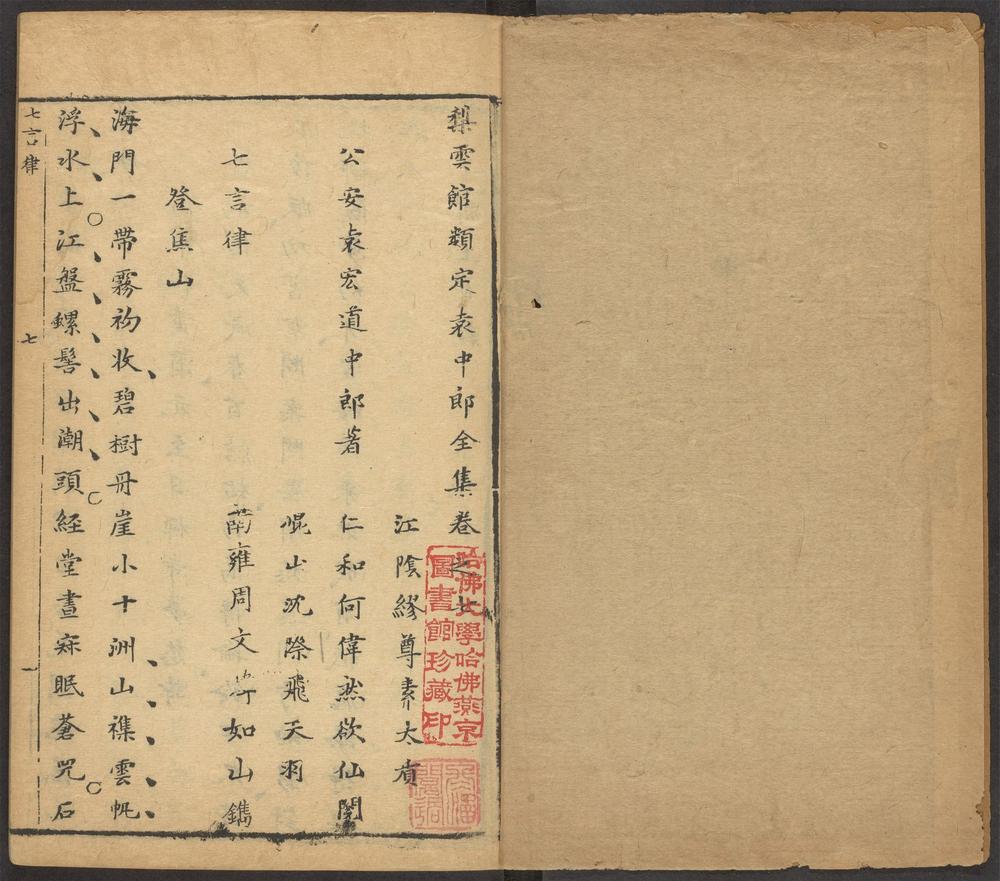 梨雲館類定袁中郎全集卷之七
江陰繆尊素大質
公安袁宏道中郎著 仁和何偉然欲仙閱
崐山沈際飛天羽
七言律 南雍周文煒如山鐫
登焦山
海門一帶霧初收碧樹丹崖小十洲山襍雲帆
浮水上江盤鏍髻出潮頭經堂晝寂眠蒼兕石
七言律 七 一
哈佛大學哈佛燕京
圖書館珍藏印